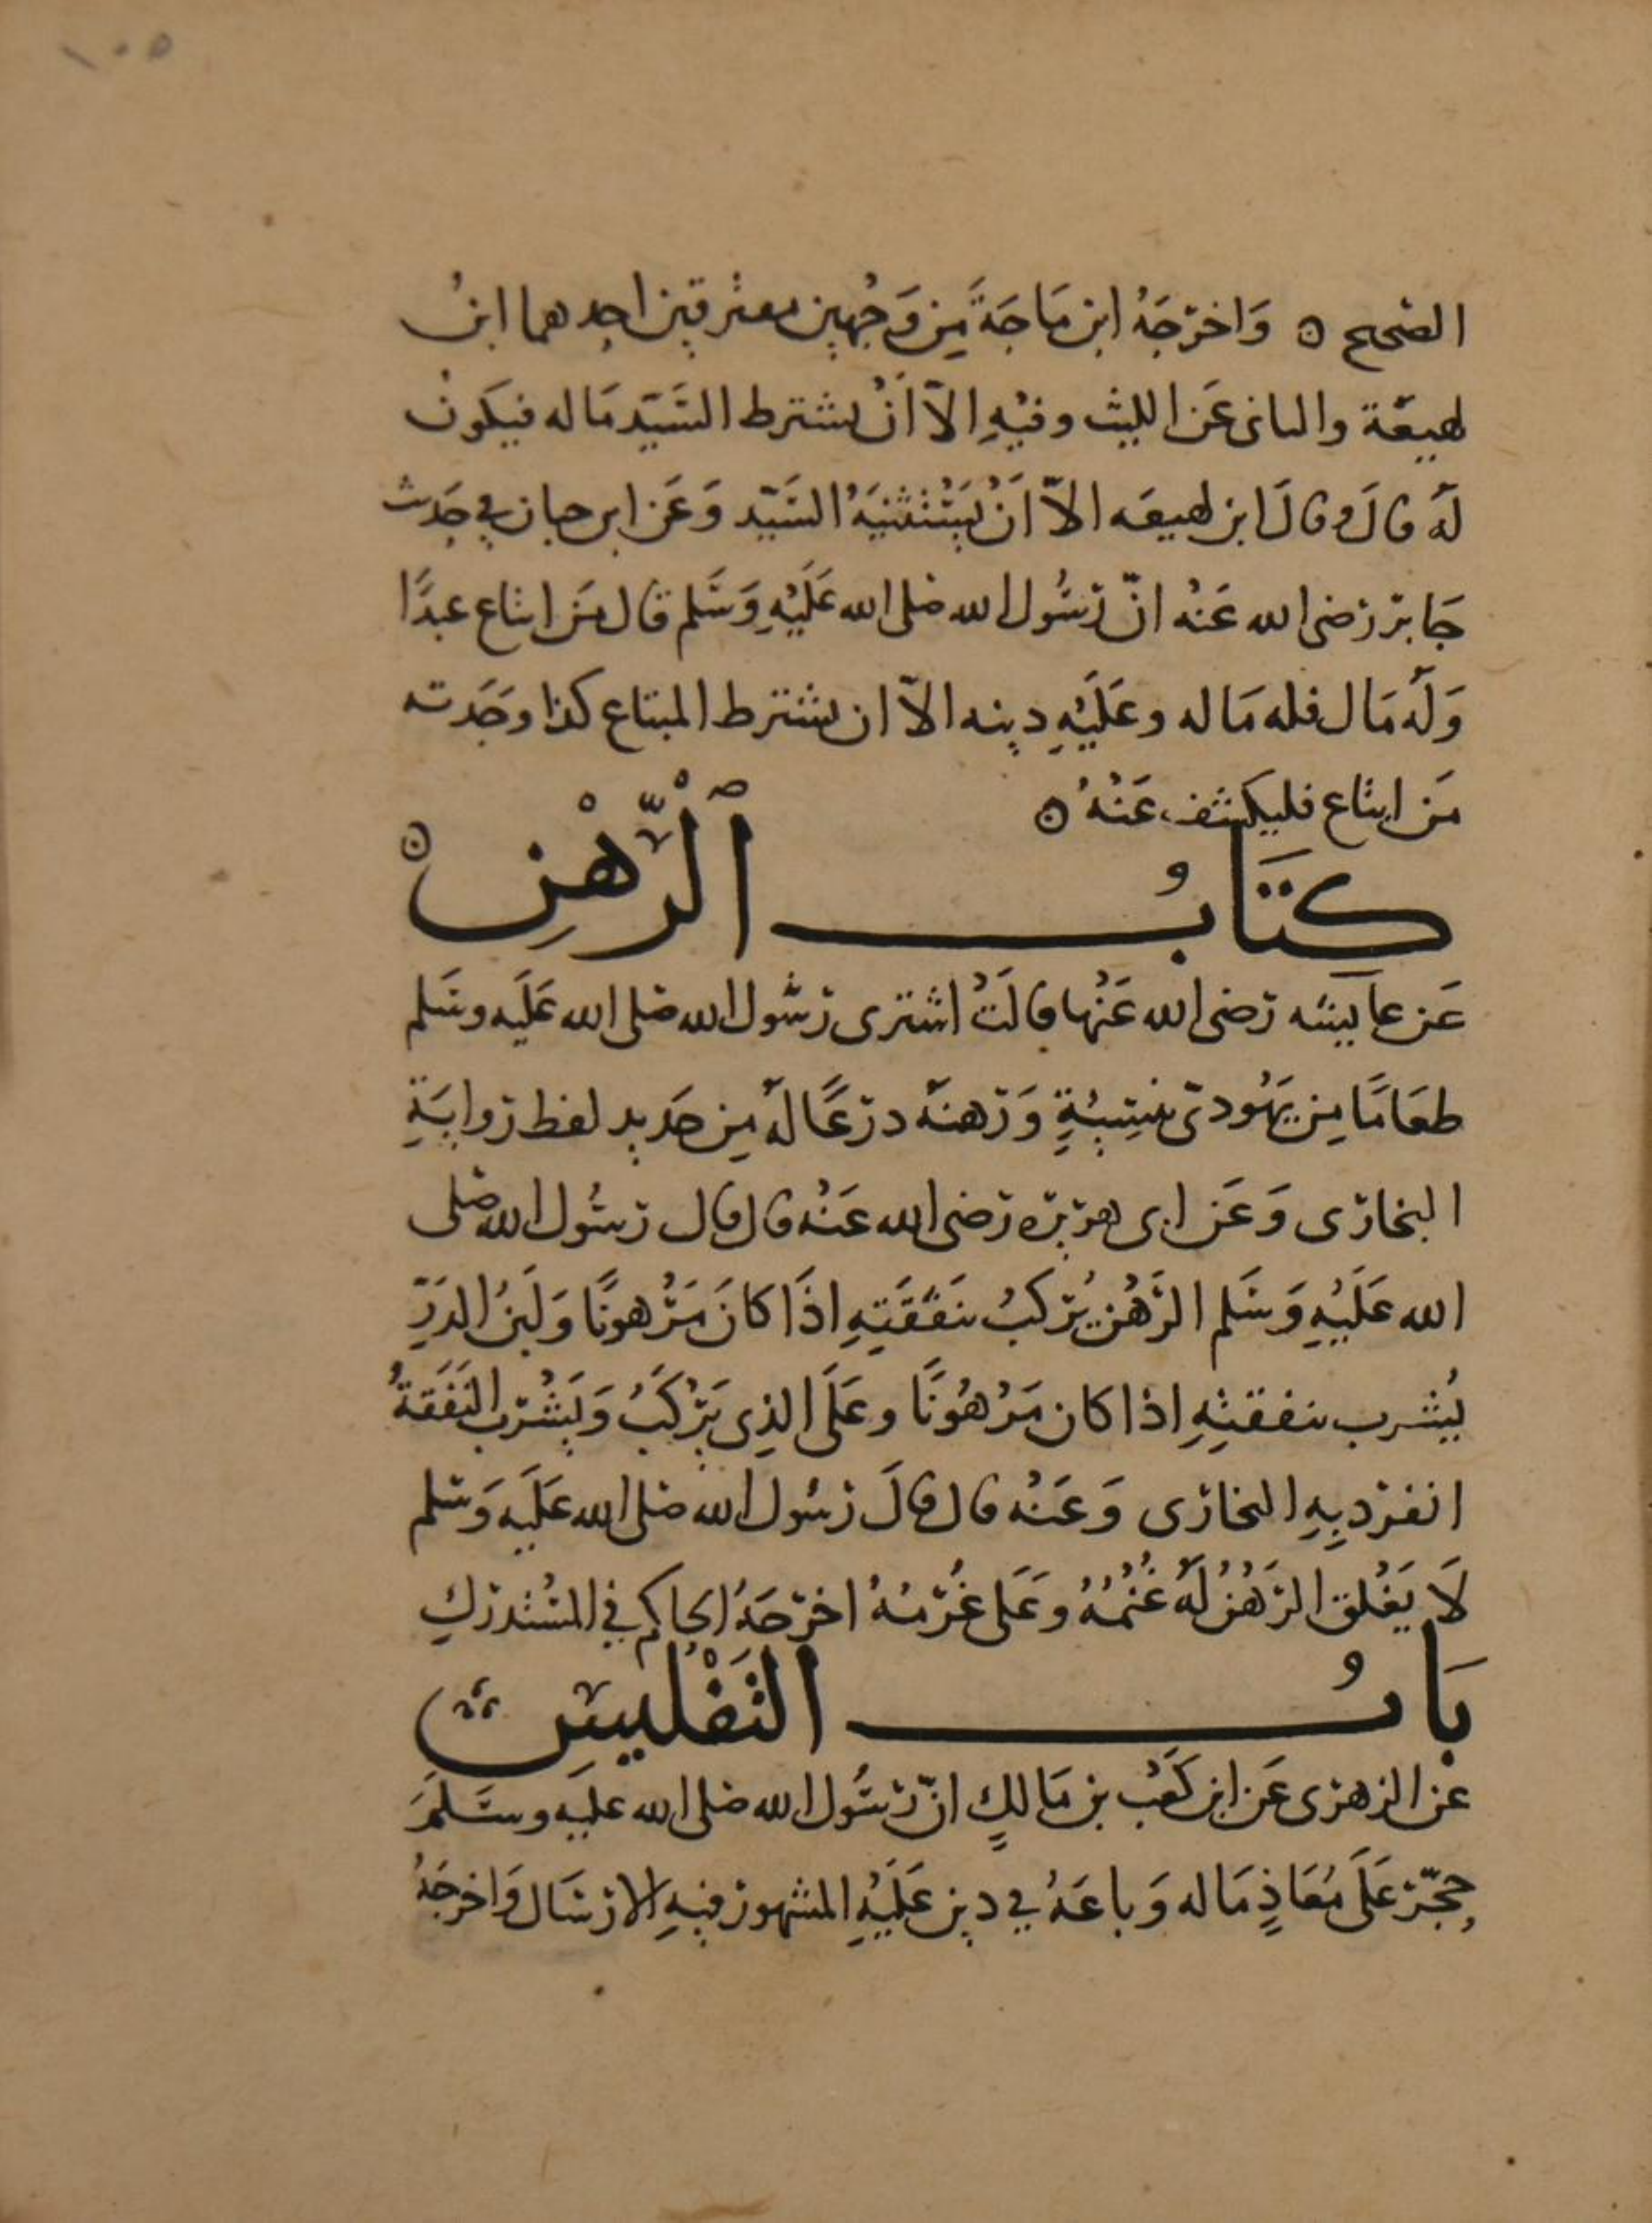 ١٠٥
الصحيح ٥ وَاخرَجَهُ ابن مَاجَةَ مِن وَجهَين مفترقين احدهما ابنُ
لهيعَة والثانى عَن الليث وفيْهِ الآ اَنْ يشترط السَيّد مَاله فيكون
لَهُ قالَ وقالَ ابن لهيعَه الآ اَنْ يَسْتَثْنيَهُ السَيّد وَعَن ابن حبان في حَدِيث
جَابر رَضى الله عَنْه انّ رَسُول الله صَلى الله عَلَيْهِ وَسَلم قال مَن ابتاع عبدًا
وَلَهُ مَال فله مَاله وعَلَيْهِ دينه الآ ان يشترط المبتاع كذا وجَدته
مَن ابتاع فليكشف عَنْهُ ٥
كتَابُ ٱلرّهْنِ ٥
عَن عايشه رَضى الله عَنْها قالَتْ اشترى رَسُول الله صَلى الله عَلَيه وسَلم
طعَامًا مِن يَهُودىّ بنَسِيئةٍ وَرَهنَهُ درْعًا لَهُ مِن حَديد لفظ روايَةِ
البخارى وَعَن ابى هريره رَضى الله عَنْه قال قال رَسُول الله صَلى
الله عَلَيْهِ وَسَلم الرَّهْن يُركبُ بنَفَقَتِهِ اذَا كانَ مَرْهونًا وَلَبَنُ الدَرِّ
يُشرب بنفقتِهِ اذا كان مَرْهُونًا وعَلَى الذِى يَرْكَبُ وَيَشْرَب النَفَقَةُ
انفرد بِهِ البخارى وَعَنْه قال قالَ رَسُول الله صَلى الله عَلَيه وَسَلم
لَا يَغْلق الرَهْنُ لَهُ غُنْمُهُ وعَلى غُرْمُهُ اخرَجَهُ الحاكم في المسْتدركِ
بَابُ التَفْليسِ
عن الزهرى عَن ابن كَعْب بن مَالكٍ انّ رَسُول الله صَلى الله عليَه وسَلمَ
حجّر عَلَى مُعَاذٍ مَاله وَباعَهُ في دين عَلَيْهِ المشهور فيهِ الارسَال وَاخرجَهُ